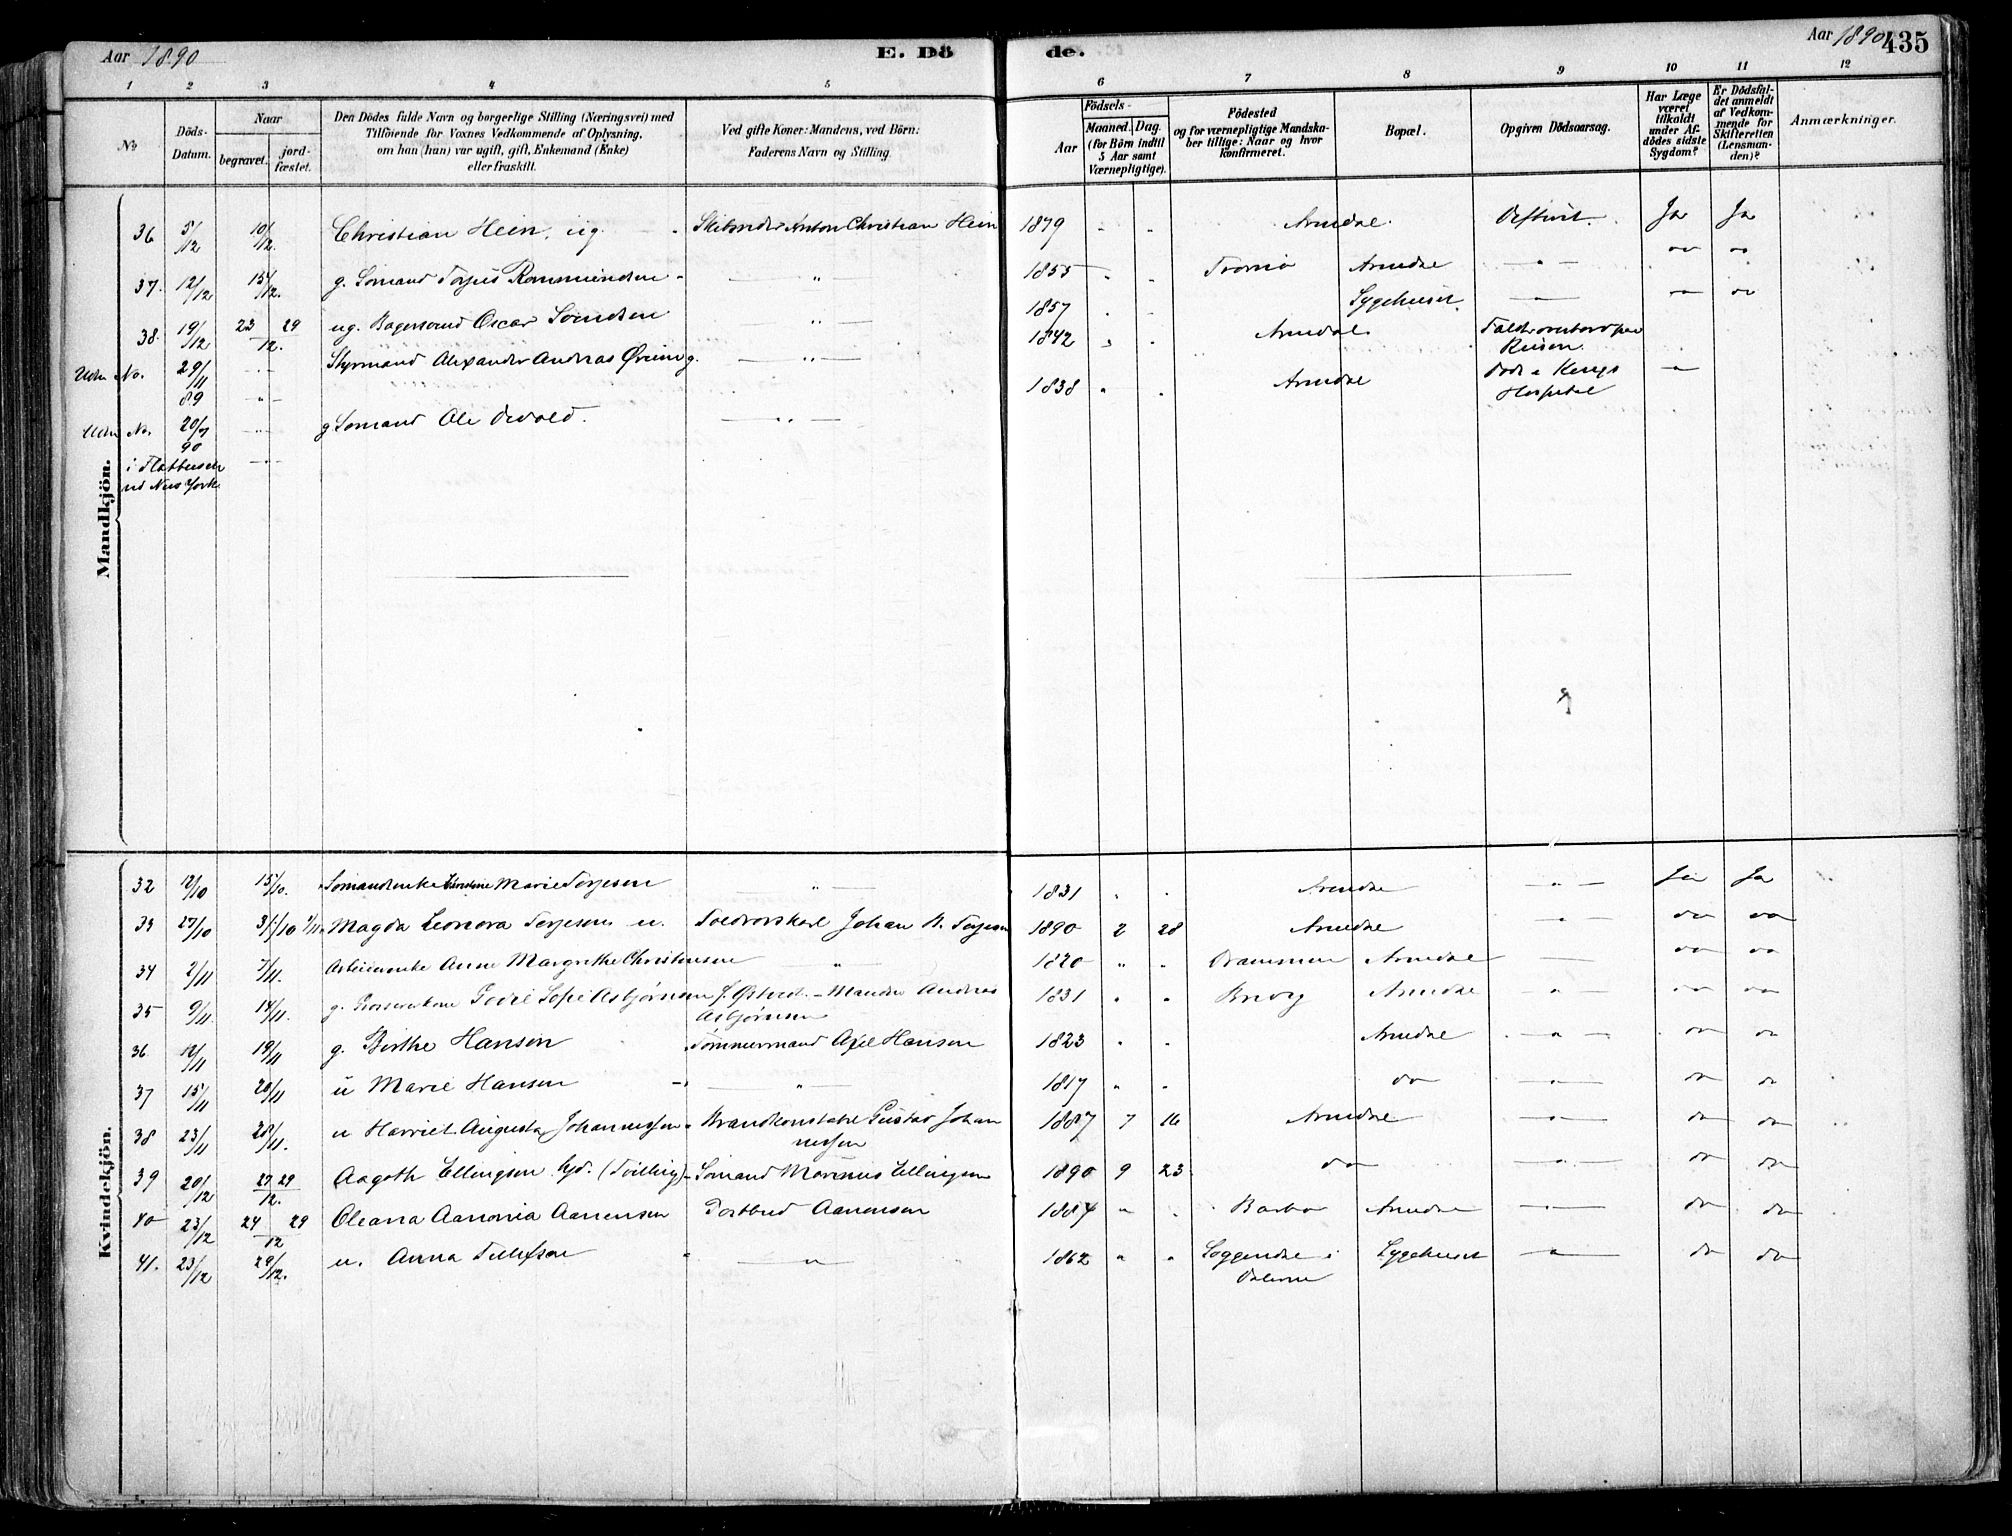 Aar 1890
E. Dö
de.
Aar 1890
435
1 2 3 4 5 6 7 8 9 10 11 12
No
Döds-
Datum.
Naar
begravet.
jord-
fæstet.
Den Dödes fulde Navn og borgerlige Stilling (Næringsvei) med
Tilföiende for Voxnes Vedkommende af Oplysning,
om han (hun) var ugift, gift, Enkemand (Enke)
eller fraskilt.
Ved gifte Koner: Mandens, ved Börn:
Faderens Navn og Stilling.
Födsels-
Aar
Maaned. Dag.
(for Börn indtil
5 Aar samt
Værnepligtige).
Födested
og for værnepligtige Mandska-
ber tillige: Naar og hvor
konfirmeret.
Bopæl.
Opgiven Dödsaarsag.
Har Læge
været
tilkaldt
under Af-
dödes sidste
Sygdom?
Er Dödsfal-
det anmeldt
af Vedkom-
mende for
Skifteretten
(Lensman-
den)?
Anmærkninger.
Mandkjön.
36 5/12 10/12 Christian Hein, ug. Anton Christian Hein 1879 " " Arendal Ja Ja
37. 12/12 15/12. g. Sømand Torjus " 1855 " " Tromø Arendal " do do
38. 19/12 23 29/12. ug. Oscar " 1857 " " Sygehuset " do do
Uden No. 29/11 89 Styrmand Alexander Andreas g. " 1842 " " Arendal Reisen
Uden No. 20/7 90 g. Sømand Ole " 1838 " " Arendal Hospital
i Flatbush
ved New York
Kvindekjön.
32 12/10 15/10. Marie Terjesen " 1831 " " Arendal " Ja Ja
33 27/10 31/10 1/11 Magda Leonora Terjesen u. Johan 1890 2 28 Arendal " do do
34 2/11 7/11. Anne Margrethe Christensen " 1820 " " Drammen Arendal do do
35 9/11 14/11. g. Sofie Asbjørnsen Andreas
Asbjørnsen 1831 " " Brevig Arendal " do do
36 12/11 19/11 g. Birthe Hansen Tømmermand Axel Hansen 1823 " " Arendal " do do
37 15/11 20/11 u Marie Hansen " 1817 " " do " do do
38 23/11 28/11. u Harriet Augusta Johannessen Brandkonstabel Gustav Johan
nessen 1887 7 16 Arendal " do do
39 20/12 27 29/12. Aagoth Ellingsen (Tvilling) Sømand Marenius Ellingsen 1890 9 23 do " do do
40 23/12 24 29/12 Oleana Aanonia Aanensen Postbud Aanensen 1884 " " Barbo Arendal do do
41. 23/12 29/12. u. Anna Tellefsen " 1862 " " Soggendal i
Dalerne Sygehuset " do do